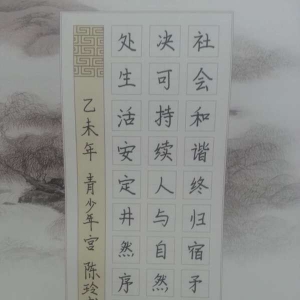 社会和谐终归宿矛
决可持续人与自然
处生活安定井然序
乙未年 青少年宫 陈玲